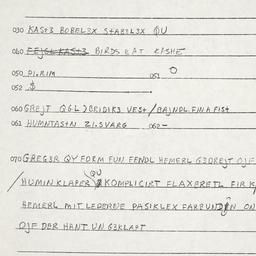 030 KAST3 BOBEL3X STABIL3X QU
040 FEJGL KAST3 BIRDS EAT KASHE
050 PI.RIM 051 O
052 $
060 GREJT Q6L) BEIDIR3 VEST/BAJNDL.FINA FIST
061 HUMNTASTN ZI.SVARG 062-
070 GREG3R QY FORM FUN FENDL HEMERL G3DREJT OJF
QU
/HUMIN KLAPER KOMPLICIRT FLAXERETL FIR
HEMERL MIT LEDERNE PASIKLEX FARBUNDN ON
OJF DER HANT UN G3KLAPT